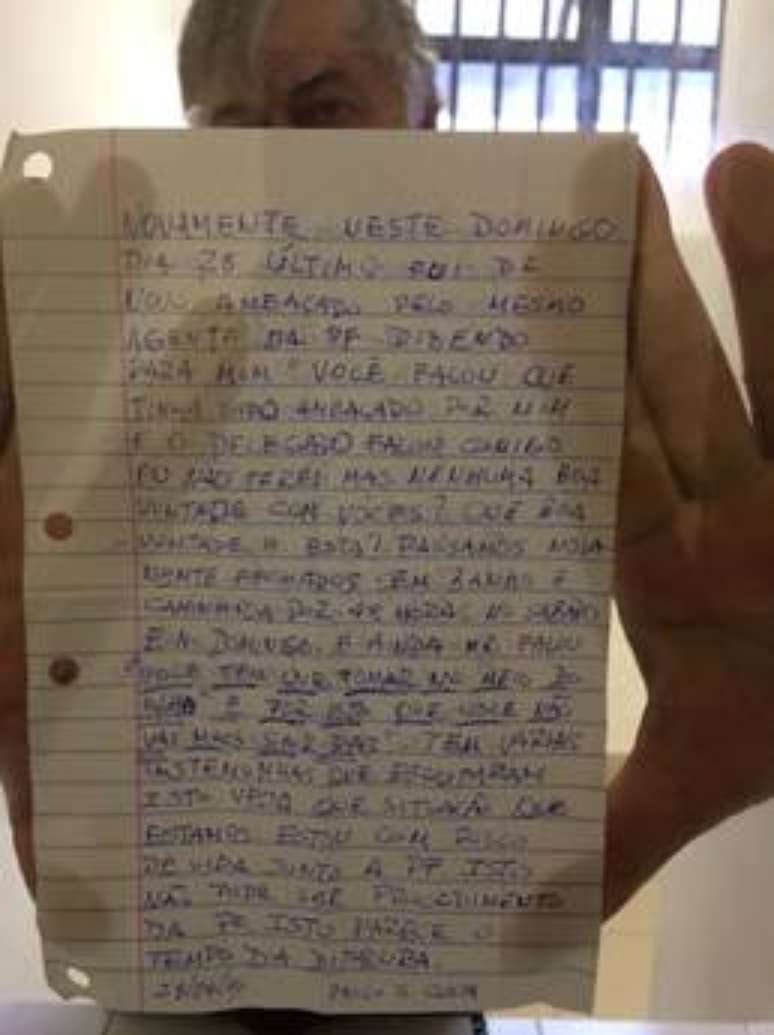 NOVAMENTE NESTE DOMINGO
DIA 28 ÚLTIMO FUI DE
NOVO AMEAÇADO PELO MESMO
AGENTE DA PF DIZENDO
PARA MIM "VOCÊ FALOU QUE
TINHA SIDO AMEAÇADO POR MIM
E O DELEGADO FALOU COMIGO
EU NÃO TEREI MAS NENHUMA BOA
VONTADE COM VOCES? QUE BOA
VONTADE É ESTA? PASSAMOS NOVA
MENTE FECHADOS SEM BANHO E
CAMINHADA POR 48 HORAS NO SABADO
E NO DOMINGO. E AINDA ME FALOU
"VOCE TEM QUE TOMAR NO MEIO DO
É POR ISTO QUE VOCE NÃO
VAI MAIS SAIR DAS". TEM VÁRIAS
TESTEMUNHAS QUE ESCUTARAM
ISTO VEJA QUE SITUAÇÃO QUE
ESTAMOS ESTOU COM RISCO
DE VIDA JUNTO A PF ISTO
NÃO PODE SER PROCEDIMENTO
DA PF ISTO PARECE O
TEMPO DA DITADURA.